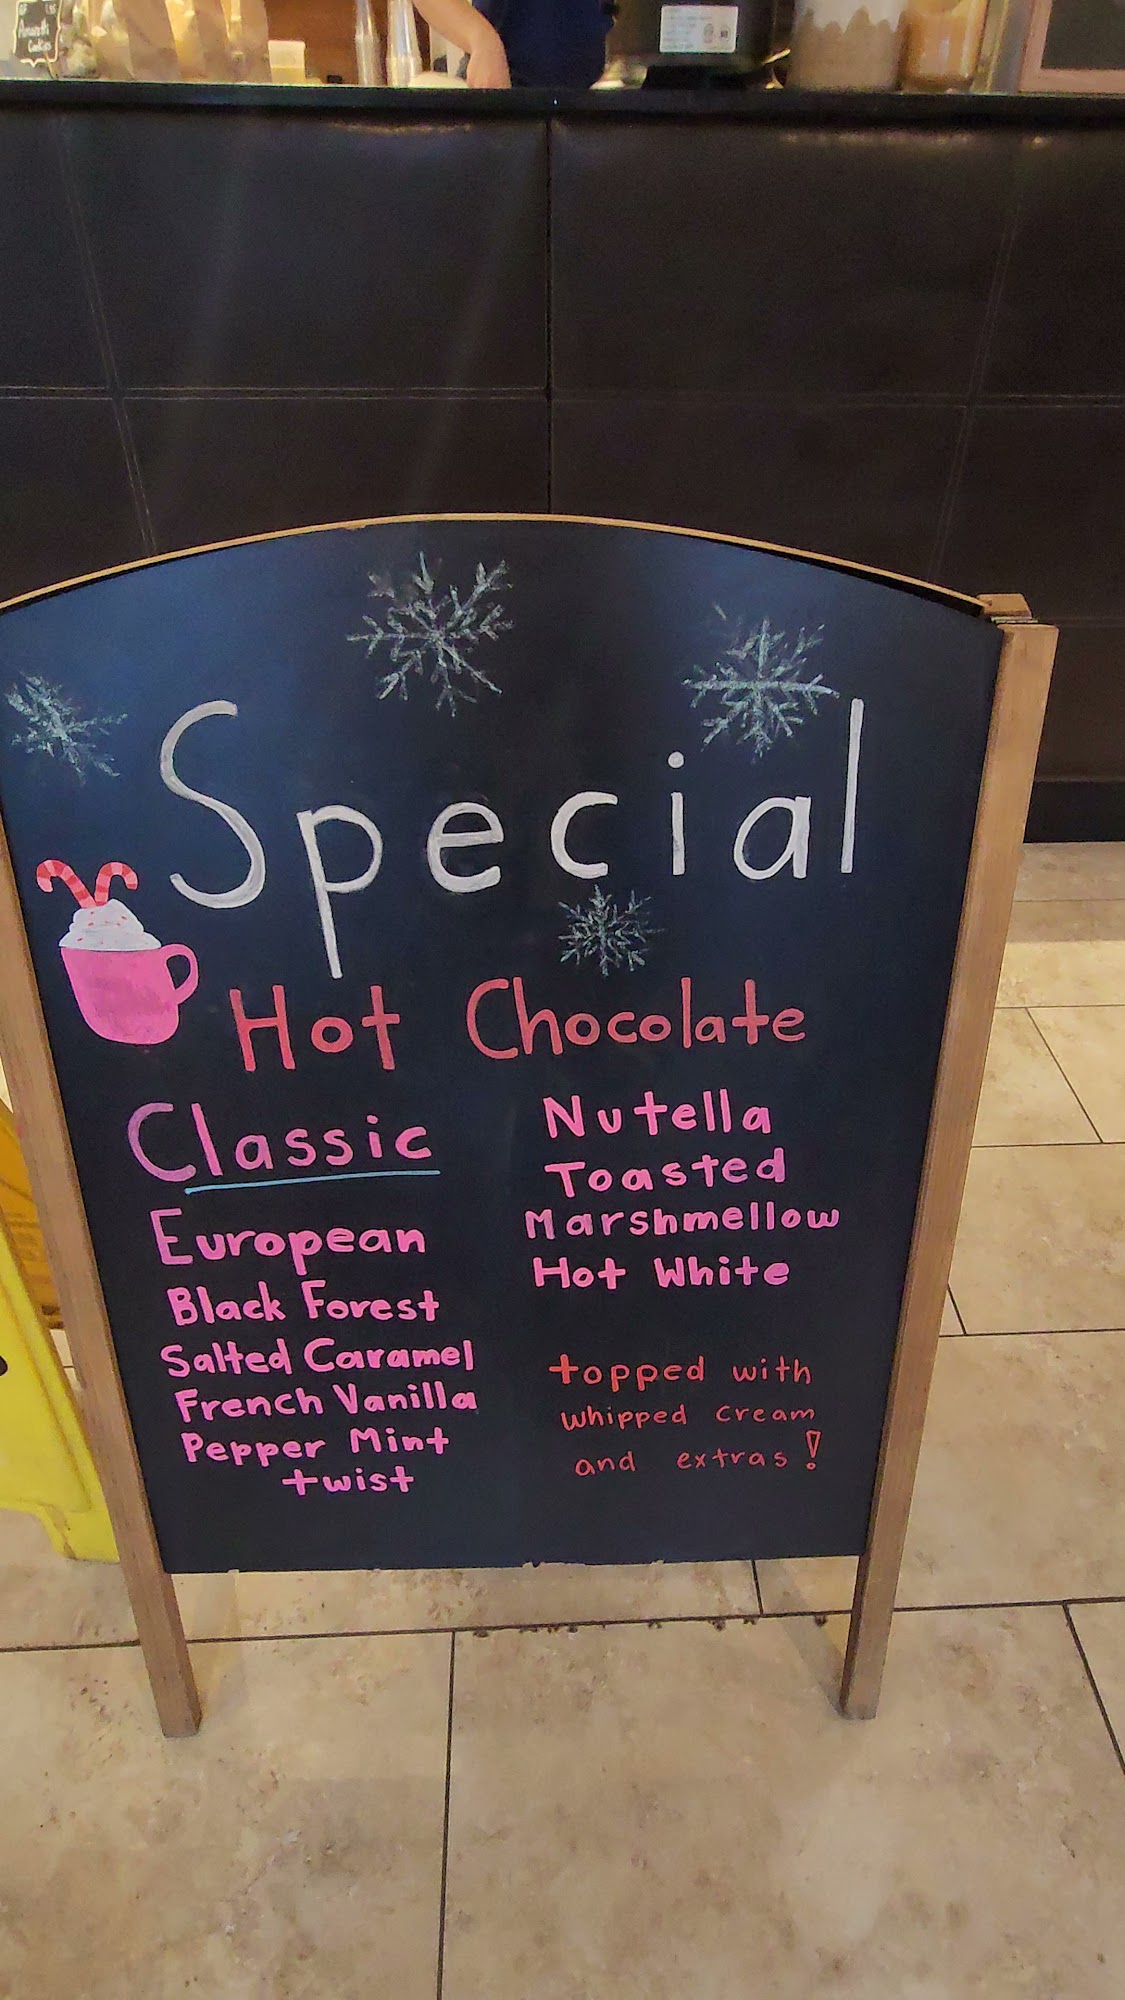 Amaretti
Cookies
Special
Hot Chocolate
Classic
European
Black Forest
Salted Caramel
French Vanilla
Pepper Mint
twist
Nutella
Toasted
Marshmellow
Hot White
topped with
whipped cream
and extras!